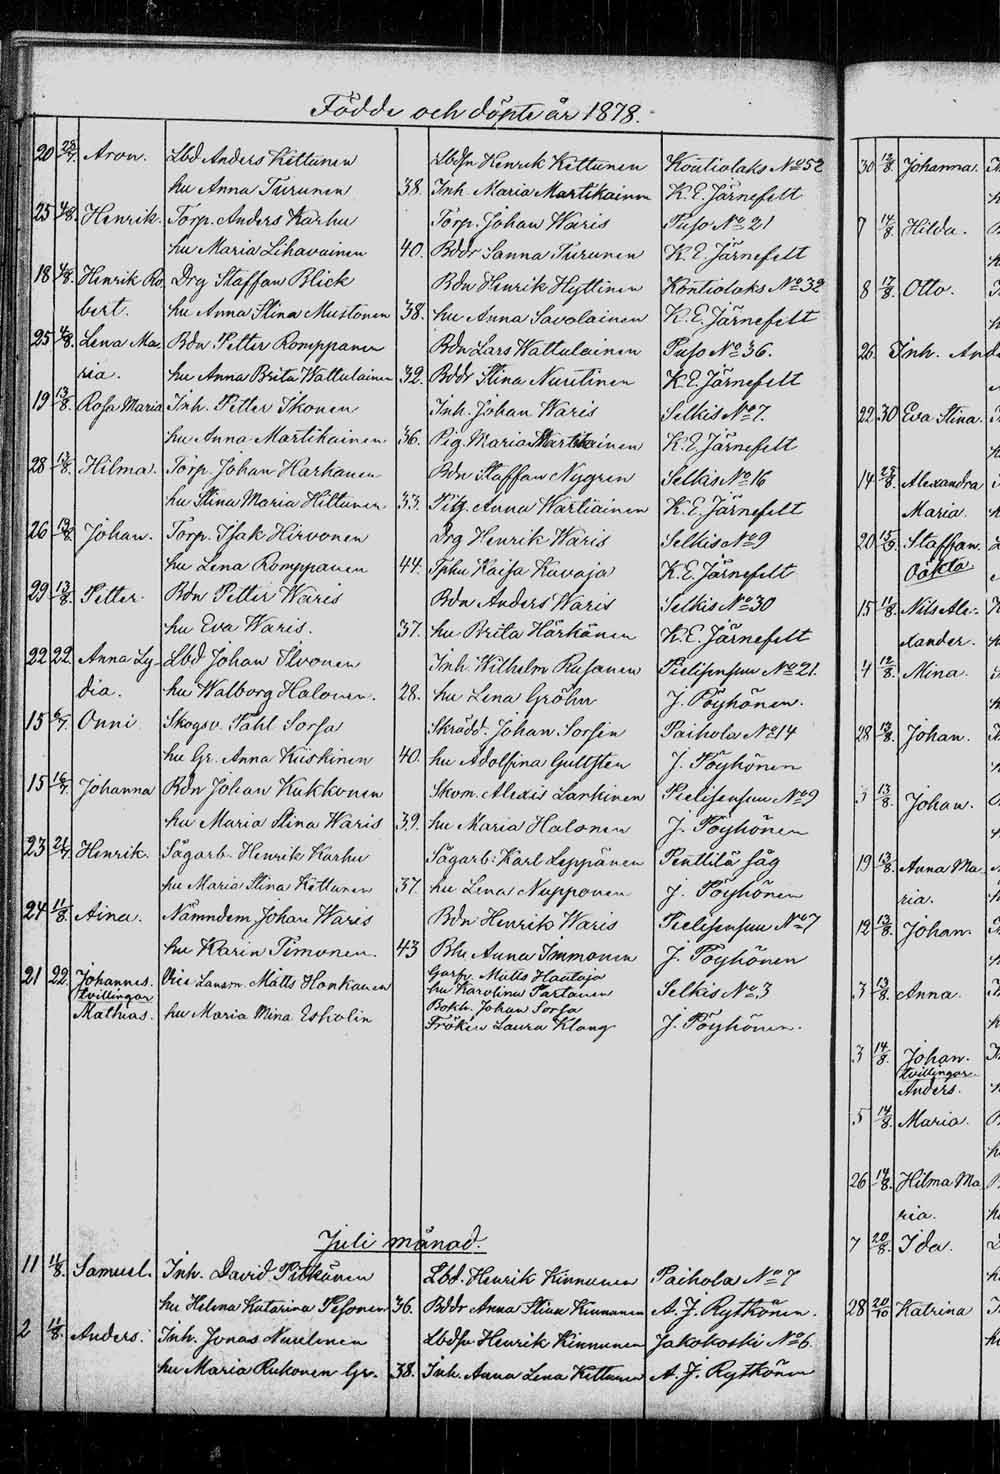 Födde och döpte år 1878.
20 29/7. Aron. Lbd Anders Kettunen Lbdsn Henrik Kettunen Kontiolaks No 52
hu Anna Turunen 38. Inh. Maria Martikainen K. E. Järnefelt
25 4/8. Henrik. Torp. Anders Karhu Torp. Johan Waris Puso No 21
hu Maria Lihavainen 40. Bddr Sanna Turunen K. E. Järnefelt
18 4/8. Henrik Ro- Drg Staffan Blick Bdn Henrik Hyttinen Kontiolaks No 32
bert. hu Anna Stina Mustonen 38. hu Anna Savolainen K. E. Järnefelt
25 4/8. Lena Ma- Bdn Petter Romppanen Bdn Lars Wattulainen Puso No 36.
ria. hu Anna Brita Wattulainen 32. Bddr Stina Nuutinen K. E. Järnefelt
19 13/8. Rosa Maria Inh. Petter Ikonen Inh. Johan Waris Selkis No 7.
hu Anna Martikainen 36. Pig. Maria Martikainen K. E. Järnefelt
28 13/8. Hilma. Torp. Johan Harhanen Bdn Staffan Nygren Selkis No 16
hu Stina Maria Hiltunen 33. Pig. Anna Wartiainen K. E. Järnefelt
26 13/8. Johan. Torp. Isak Hirvonen Drg Henrik Waris Selkis No 9
hu Lena Romppanen 44. Tphu Kaisa Kuvaja K. E. Järnefelt
29 13/8. Petter. Bdn Petter Waris Bdn Anders Waris Selkis No 30
hu Eva Waris. 37. hu Brita Härkönen K. E. Järnefelt
22 22. Anna Ly- Lbd Johan Ilvonen Inh. Wilhelm Rusanen Pielisensuu No 21.
dia. hu Walborg Halonen. 28. hu Lena Gröhn J. Pöyhönen.
15 6/7. Onni Skogsv. Pahl Sorsa Skrädd. Johan Sorsin Paihola No 14
hu Gr. Anna Kuiskinen 40. hu Adolfina Gullsten J. Pöyhönen
15 16/7. Johanna Bdn Johan Kukkonen Skom. Alexis Larkinen Pielisensuu No 9
hu Maria Stina Waris 39. hu Maria Halonen J. Pöyhönen
23 21/7. Henrik. Sågarb. Henrik Karhu Sågarb. Karl Leppänen Penttilä såg
hu Maria Stina Kettunen 37. hu Lena Nupponen J. Pöyhönen
24 11/8. Aina. Nämndem. Johan Waris Bdn Henrik Waris Pielisensuu No 7
hu Karin Timonen. 43 Bhu Anna Immonen J. Pöyhönen
21 22. Johannes. Vice Lansm. Matts Honkanen Garfv. Matts Hautoja
tvillingar hu Karolina Partanen Selkis No 3
Mathias. hu Maria Mina Eskolin Bokh. Johan Sorsa
Fröken Laura Klang J. Pöyhönen.
Juli månad.
11 11/8. Samuel. Inh. David Pitkänen Lbd. Henrik Kinnunen Paihola No 7
hu Helena Katarina Pesonen 36. Bddr Anna Stina Kinnunen A. J. Rytkönen.
2 11/8. Anders. Inh. Jonas Nuutinen Lbdsn Henrik Kinnunen Jakokoski No 6.
hu Maria Rukonen Gr. 38. Inh. Anna Lena Kettunen A. J. Rytkönen
30 12/8. Johanna.
7 14/8. Hilda.
8 17/8. Otto.
26. Inh. And
22. 30 Eva Stina.
14 25/8. Alexandra
Maria.
20 15/9. Staffan.
Oäkta
15 11/8. Nils Ale-
xander.
4 12/8. Mina.
28 13/8. Johan.
3 13/8. Johan.
19 13/8. Anna Ma-
ria.
12 13/8. Johan.
3 13/8. Anna.
3 14/8. Johan.
tvillingar.
Anders.
5 14/8. Maria.
26 14/8. Hilma Ma
ria.
7 20/8. Ida.
28 20/10 Katrina